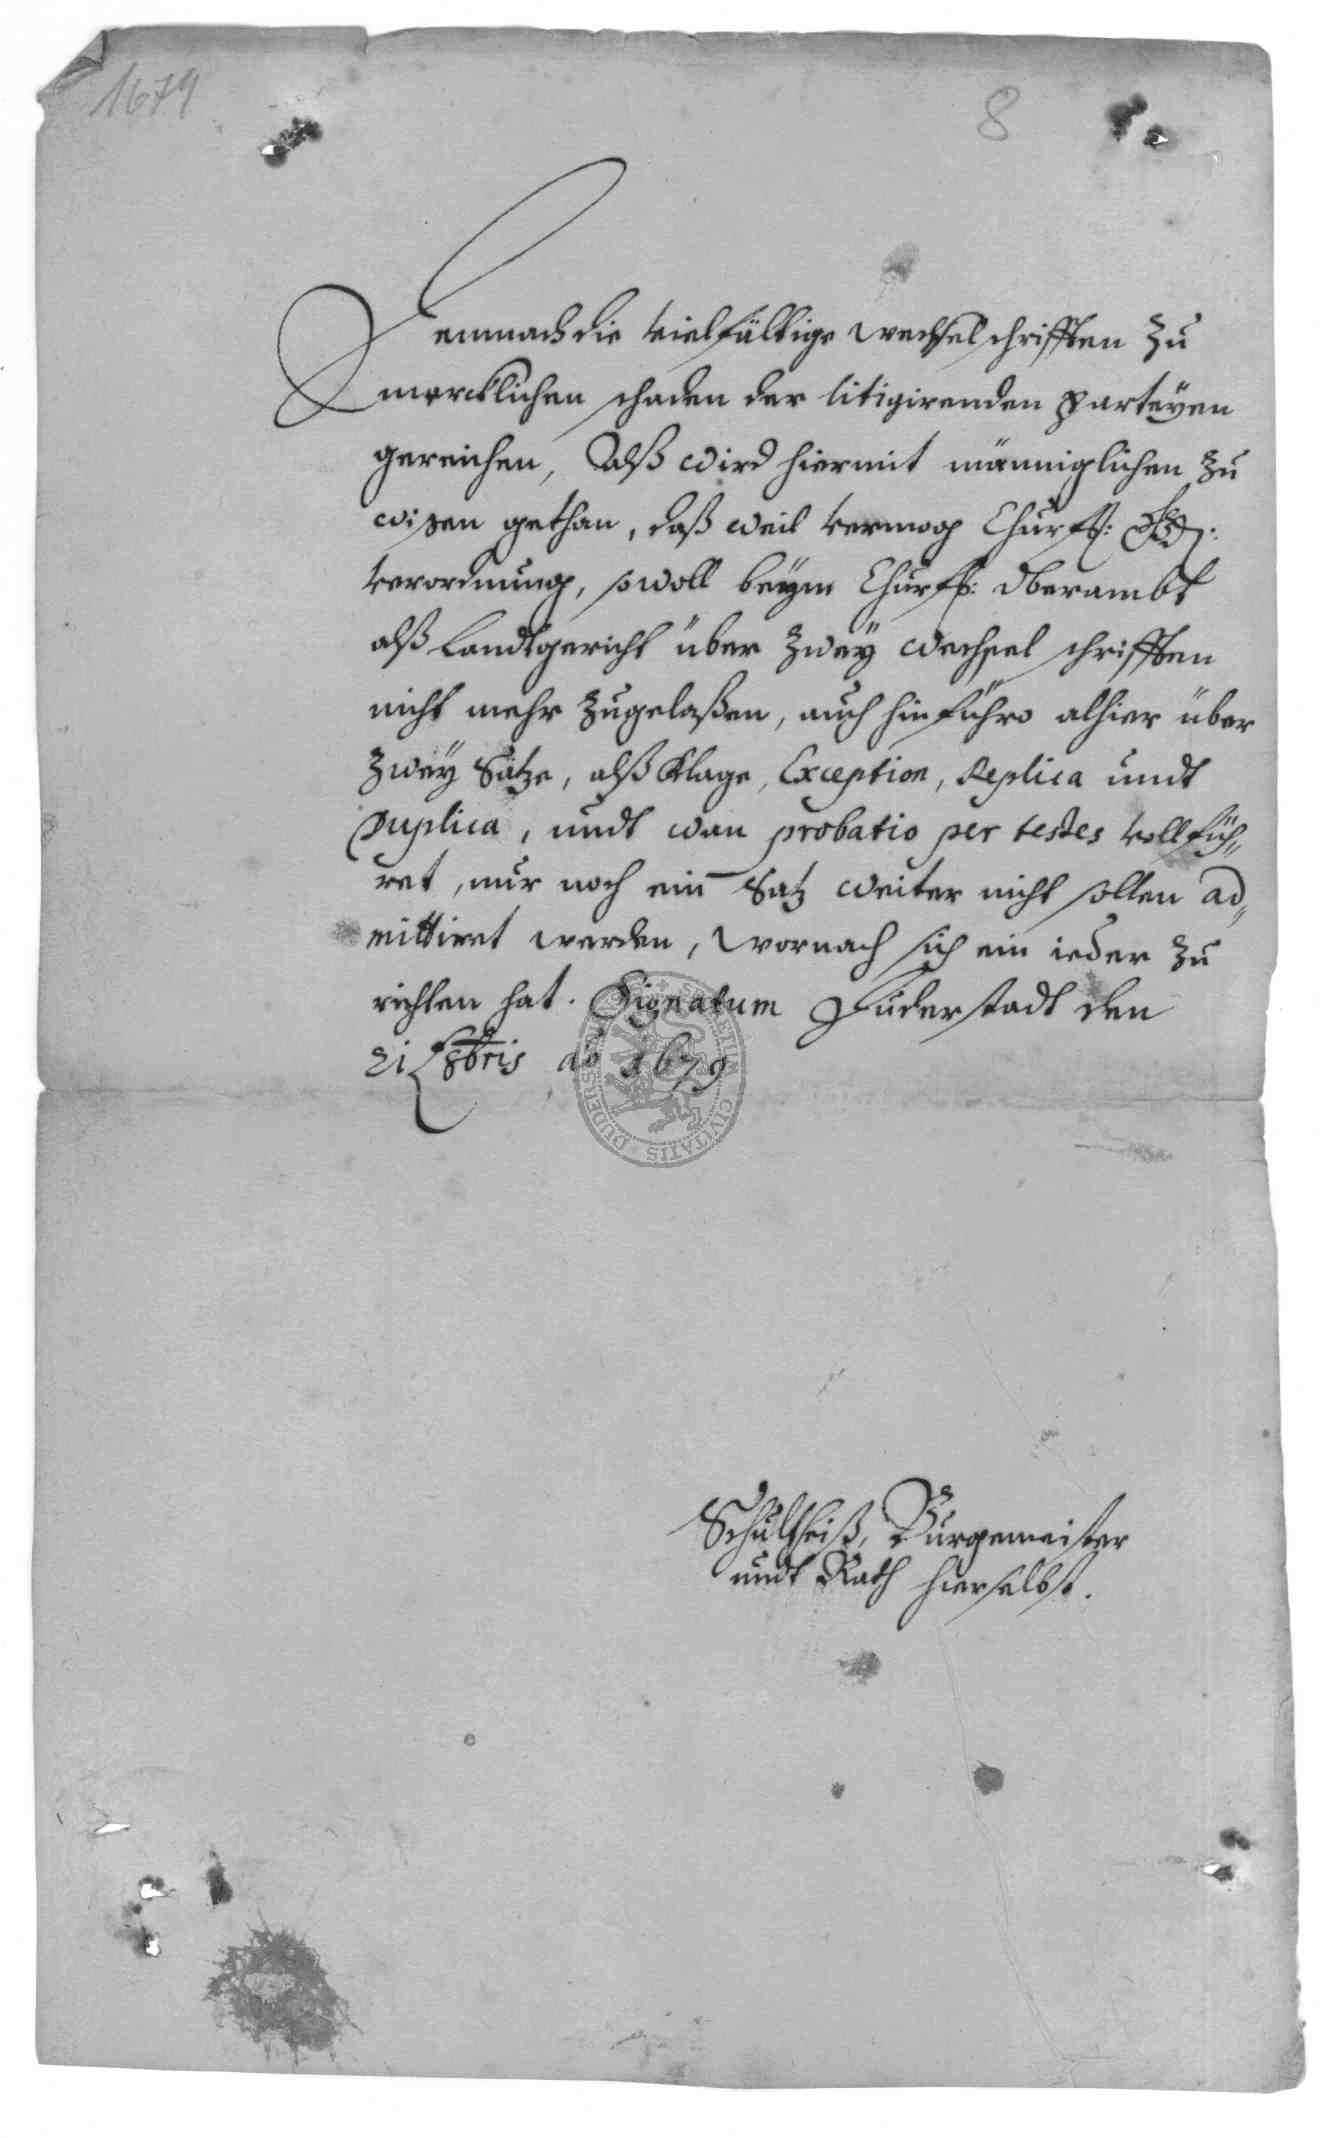 1679
8
Demnach die vielfältige wechselschrifften zu
mercklichen schaden der litigirenden parteyen
gereichen, Alß wird hiermit männiglichen zu
wißen gethan, daß weil vermög Churfl:
verordnung, sowoll beym Churfl: Oberambt
alß Landtgericht über zwey wechsel schrifften
nicht mehr zugelaßen, auch hinführo alhier über
zwey Sätze, alß Klage, Exception, Replica undt
Duplica, undt wan probatio per testes vollfüh„
ret, nur noch ein Satz weiter nicht sollen ad„
mittiret werden, wornach sich ein ieder zu
richten hat. Signatum Duderstadt den
21 8bris ao 1679
Schultheiß, Burgemeister
undt Rath hierselbst.
CIVITATIS DUDERS